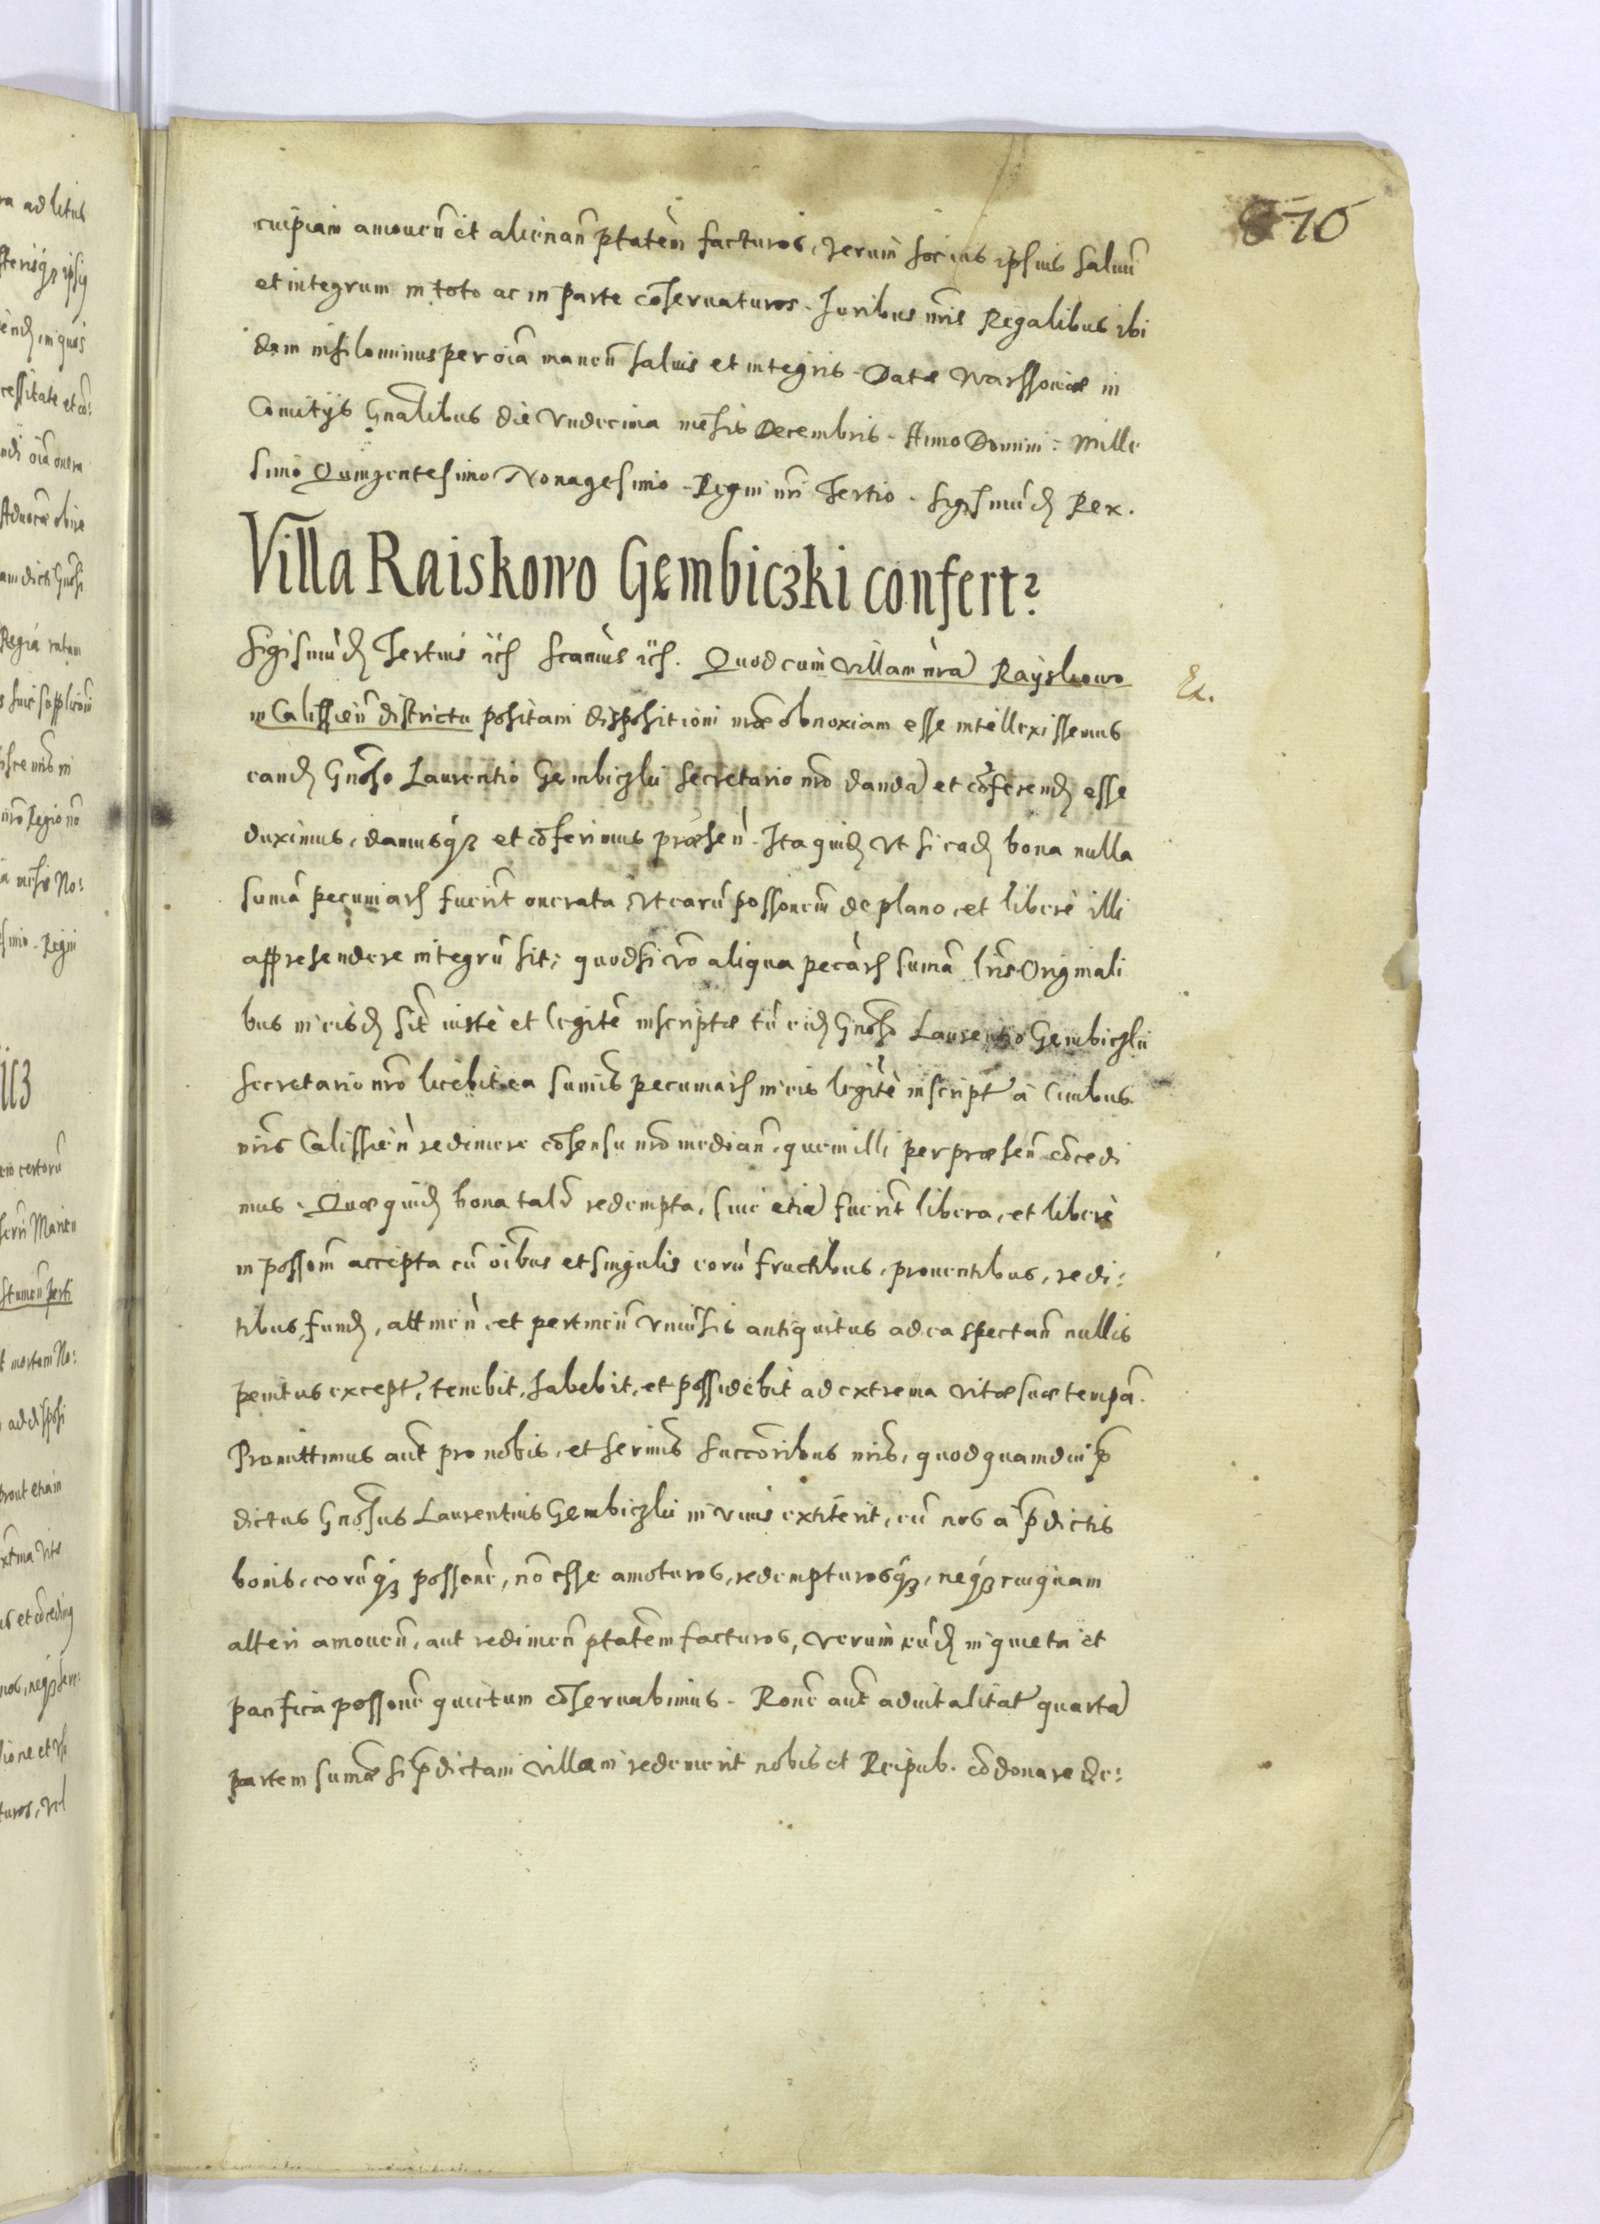 570
cuipiam amouen̄ et alienan̄ ptatem facturos, verum hoc ius ipsius saluum
et integrum in toto ac in parte cōseruaturos. Juribus nr̄is Regalibus ibi
dem nihilominus per oīa manen̄ saluis et integris. Datæ Warssouiæ in
Comitijs Gnālibus die Vndecima mēsis Decembris. Anno Domini: Mille
simo Quingentesimo Nonagesimo. Regni nr̄i Tertio. Sigismūd Rex.
Villa Raiskowo Gembiczki confert
Sigismūd Tertius etc Scamus etc. Quod cum villam nr̄ā Rayskowo
in Calissien̄ districtu positam dispositioni nr̄æ obnoxiam esse intellexissemus
eand Gnōso Laurentio Gembiczki Secretario nr̄o dandā et cōferend esse
duximus, damusq3 et cōferimus præsen̄. Ita quid vt si ead bona nulla
sumā pecuniar fuerit onerata vt earū possonem de plano, et liberè illi
apprehendere integrū sit; quodsi vō aliqua pecār sumā lr̄is Originali
bus in eisd sit iustè et legitè inscripta tū eid Gnōso Laurentio Gembiczki
Secretario nr̄o licebit ea sumā pecuniar in eis legitè inscript à Ciuibus
nr̄is Calissien̄ redimere cōsensu nr̄o median̄, quem illi per præsen̄ cōcedi
mus. Quæ quid bona talr̄ redempta, siue etiā fuerit libera, et liberè
in possom̄ accepta cū oībus et singulis eorū fructibus, prouentibus, redi:
tibus, fund, attinen̄, et pertinen̄ vniuersis antiquitus ad ea spectan̄ nullis
penitus except, tenebit, habebit, et possidebit ad extrema vitæ suæ tempā.
Promittimus aut̄ pro nobis, et sermis succōribus nr̄is, quod quamdiu p̄
dictus Gnōsus Laurentius Gembiczki in viuis extiterit, eū nos à p̄dictis
bonis, eorūq3 possone, nō esse amoturos, redempturosq3, neq3 cuiquam
alteri amouen̄, aut redimen̄ ptatem facturos, verum eūd in quieta et
pacifica possone quietum cōseruabimus. Rōne aut̄ aduitalitat quartā
partem sumæ si p̄dictam villam redemerit nobis et Reipub. cōdonare de:
Ex.